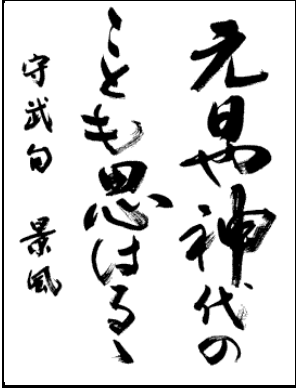 元日や神代の
ことも思はるゝ
守武句 景風